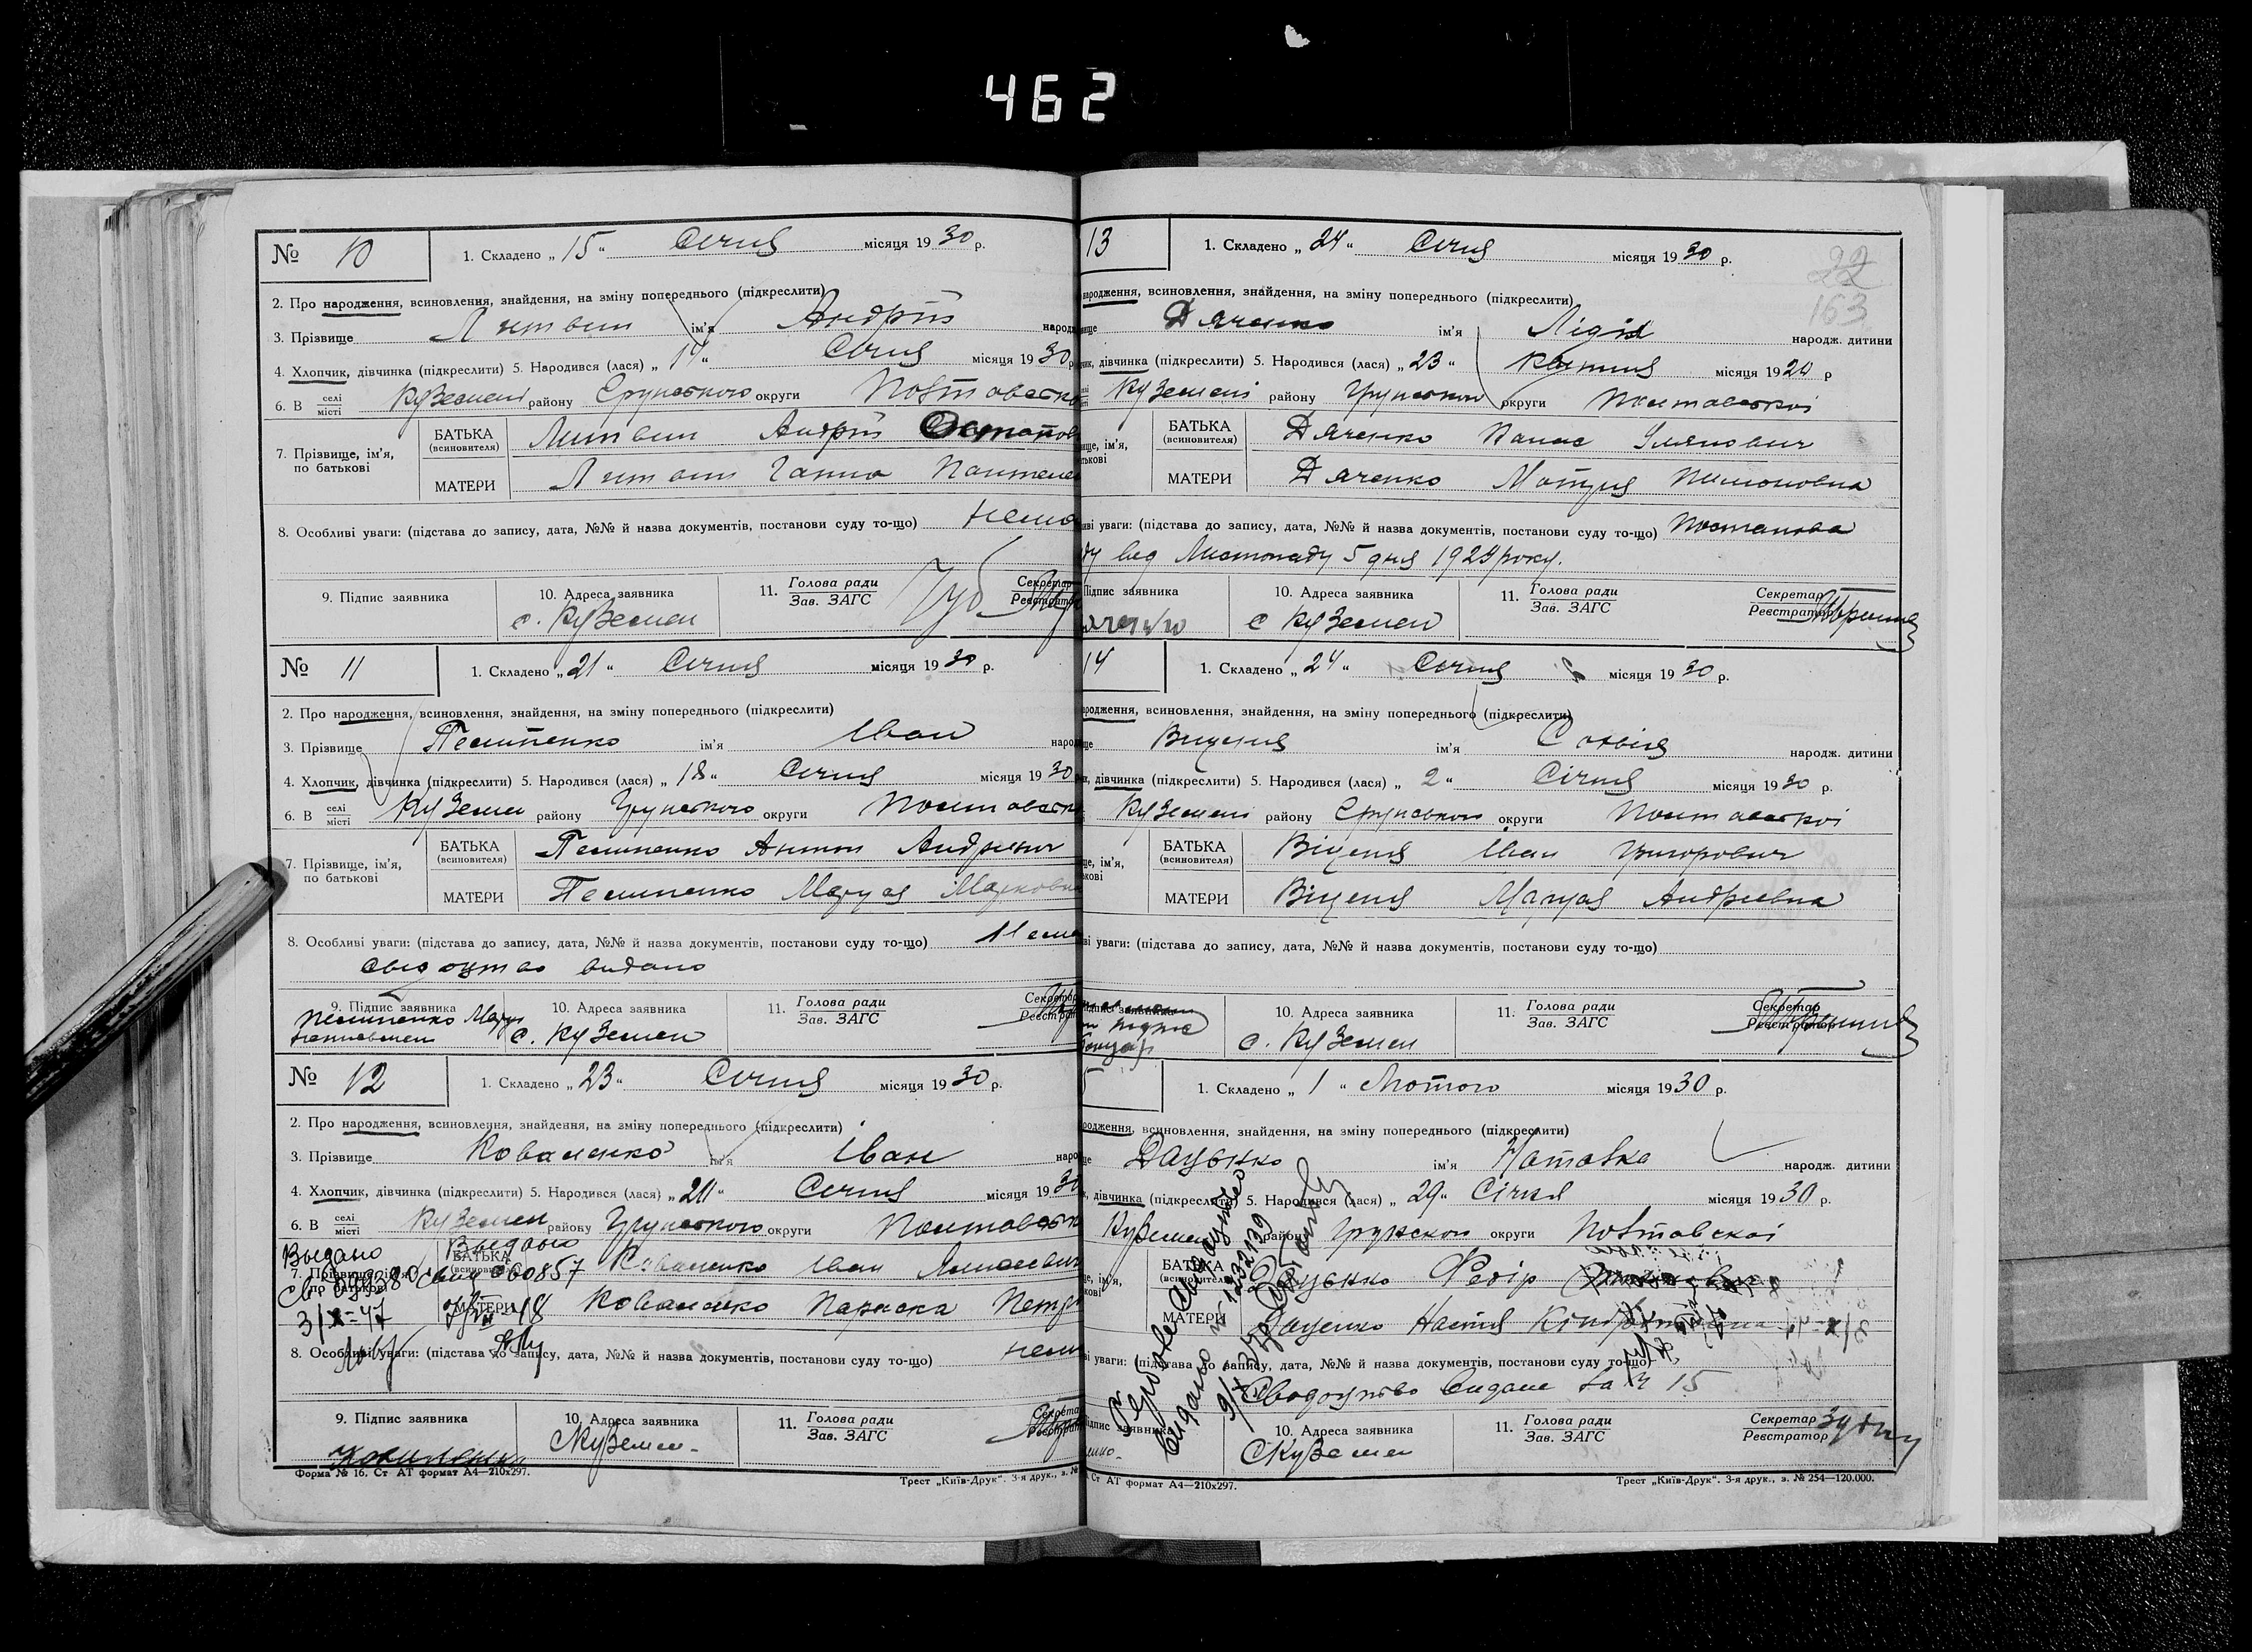 462
№ 10
1. Складено „ 15 “ Січня місяця 19 30 р.
2. Про народження, всиновлення, знайдення, на зміну попереднього (підкреслити)
3. Прізвище Литвин ім'я Андрій народ
4. Хлопчик, дівчинка (підкреслити) 5. Народився (лася) „ 14 “ Січня місяця 19 30 р
6. В селі місті Куземені району Грунського округи Полтавсько
7. Прізвище, ім'я, по батькові
БАТЬКА (всиновителя) Литвин Андрій Остапов
МАТЕРИ Литвин Ганна Пантеле
8. Особливі уваги: (підстава до запису, дата, №№ й назва документів, постанови суду то-що) нема
9. Підпис заявника 10. Адреса заявника 11. Голова ради Зав. ЗАГС Секретар Реєстратор
с. Куземен
№ 11
1. Складено „ 21 “ Січня місяця 19 30 р.
2. Про народження, всиновлення, знайдення, на зміну попереднього (підкреслити)
3. Прізвище Пелипенко ім'я Іван народ
4. Хлопчик, дівчинка (підкреслити) 5. Народився (лася) „ 18 “ Січня місяця 19 30
6. В селі місті Куземен району Грунського округи Полтавсько
7. Прізвище, ім'я, по батькові
БАТЬКА (всиновителя) Пелипенко Антон Андрієвич
МАТЕРИ Пелипенко Маруся Марковна
8. Особливі уваги: (підстава до запису, дата, №№ й назва документів, постанови суду то-що) Нема
видано
9. Підпис заявника 10. Адреса заявника 11. Голова ради Зав. ЗАГС Секретар Реєстрат
Пелипенко
с. Куземен
№ 12
1. Складено „ 23 “ Січня місяця 19 30 р.
2. Про народження, всиновлення, знайдення, на зміну попереднього (підкреслити)
3. Прізвище Коваленко ім'я Іван наро
4. Хлопчик, дівчинка (підкреслити) 5. Народився (лася) Січня місяця 19 30
6. В селі місті Куземен району Грунського округи Полтавсько
7. Прізвище, ім'я, по батькові
БАТЬКА (всиновителя) Коваленко Иван
МАТЕРИ Коваленко Параска Петр
Выдано
Выдано
060857
8. Особливі уваги: (підстава до запису, дата, №№ й назва документів, постанови суду то-що) нема
9. Підпис заявника 10. Адреса заявника 11. Голова ради Зав. ЗАГС Секретар Реєстрат
с Куземен
Форма № 16. Ст АТ формат А4—210x297.
Трест „Київ-Друк“. 3-я друк., з. №
22
163
13
1. Складено „ 24 “ Січня місяця 19 30 р.
ародження, всиновлення, знайдення, на зміну попереднього (підкреслити)
ище Дяченко ім'я Лідія народж. дитини
ик, дівчинка (підкреслити) 5. Народився (лася) „ 23 “ місяця 19 р
Куземені району Грунського округи Полтавської
ище, ім'я, тькові
БАТЬКА (всиновителя) Дяченко Панас
МАТЕРИ Дяченко Мотуня Пилиповна
иві уваги: (підстава до запису, дата, №№ й назва документів, постанови суду то-що) Постанова
ду вед Листопаду 5 дня 1929 року.
Підпис заявника 10. Адреса заявника 11. Голова ради Зав. ЗАГС Секретар Реєстратор
с Куземен
14
1. Складено „ 24 “ Січня місяця 19 30 р.
ародження, всиновлення, знайдення, на зміну попереднього (підкреслити)
ще Виценя ім'я Софія народж. дитини
к, дівчинка (підкреслити) 5. Народився (лася) „ 2 “ Січня місяця 19 30 р.
Куземені району Грунського округи Полтавської
ще, ім'я, ькові
БАТЬКА (всиновителя) Віценя Іван Григорович
МАТЕРИ Віценя Маруся Андріевна
ві уваги: (підстава до запису, дата, №№ й назва документів, постанови суду то-що)
10. Адреса заявника 11. Голова ради Зав. ЗАГС Секретар Реєстратор
с. Куземен
1. Складено „ 1 “ Лютого місяця 19 30 р.
родження, всиновлення, знайдення, на зміну попереднього (підкреслити)
ще Даценко ім'я Наталка народж. дитини
к, дівчинка (підкреслити) 5. Народився (лася) „ 29 “ Січня місяця 19 30 р.
Куземен району Грунской округи Полтавскої
е, ім'я, кові
БАТЬКА (всиновителя) Даценко Федір
МАТЕРИ Даценко Настя
видано № 123219
ві уваги: (підстава до запису, дата, №№ й назва документів, постанови суду то-що)
Сводоцтво видане за № 15
Підпис заявника 10. Адреса заявника 11. Голова ради Зав. ЗАГС Секретар Реєстратор
с Куземен
Ст АТ формат А4—210x297.
Трест „Київ-Друк“. 3-я друк., з. № 254—120.000.